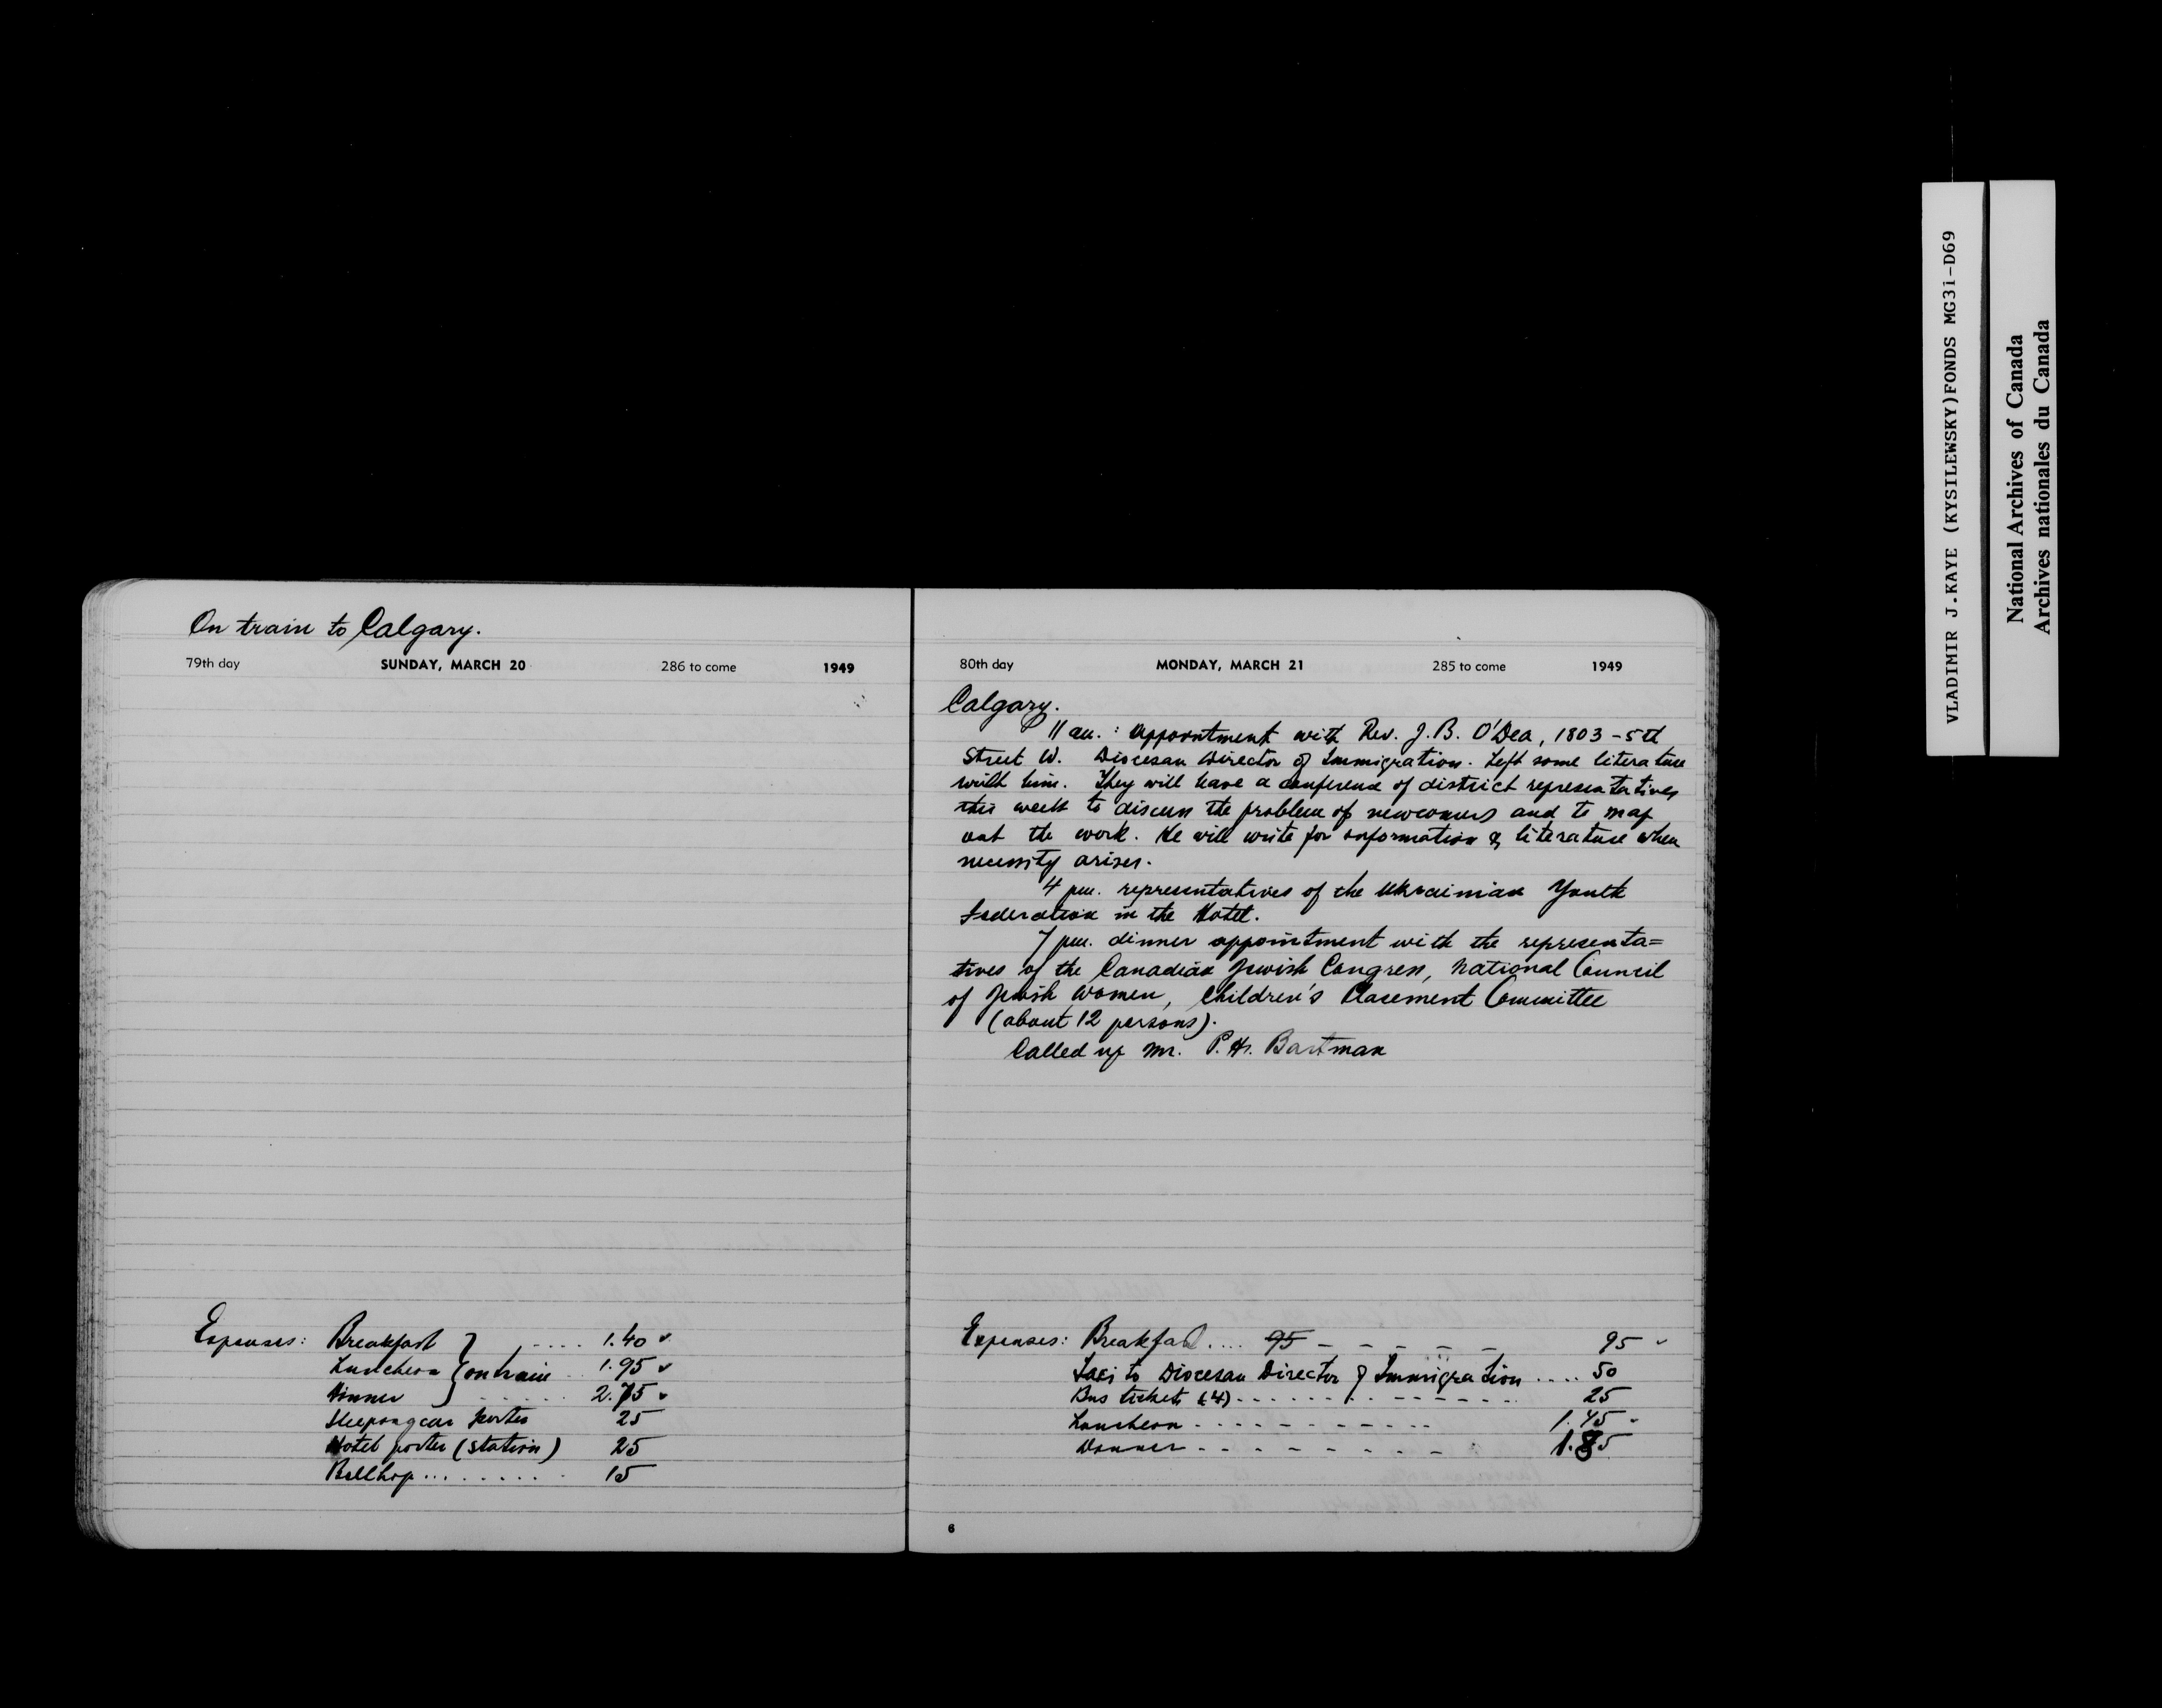 On train to Calgary.
79th day SUNDAY, MARCH 20 286 to come 1949
Expenses: Breakfast } .... 1.40 ✓
Luncheon } on train .. 1.95 ✓
Dinner } ...... 2.75 ✓
Sleepingcar porter 25
Hotel porter (station) 25
Bellhop ......... 15
80th day MONDAY, MARCH 21 285 to come 1949
Calgary.
11 am.: appointment with Rev. J. B. O'Dea, 1803 - 5th
Street W. Diocesan Director of Immigration. Left some literature
with him. They will have a conference of district representatives
this week to discuss the problem of newcomers and to map
out the work. He will write for information & literature when
necessity arises.
4 pm. representatives of the Ukrainian Youth
Federation in the Hotel.
7 pm. dinner appointment with the representa=
tives of the Canadian Jewish Congress, National Council
of Jewish Women, Children's Placement Committee
(about 12 persons).
Called up Mr. P. H.
Expenses: Breakfast .... 95 - - - - - 95 ✓
Taxi to Diocesan Director of Immigration .... 50
Bus tickets (4) - - - - - - - - - 25
Luncheon - - - - - - - - - - 1.45 ✓
Dinner - - - - - - - - - 1.85
6
VLADIMIR J.KAYE (KYSILEWSKY)FONDS MG31-D69
National Archives of Canada
Archives nationales du Canada